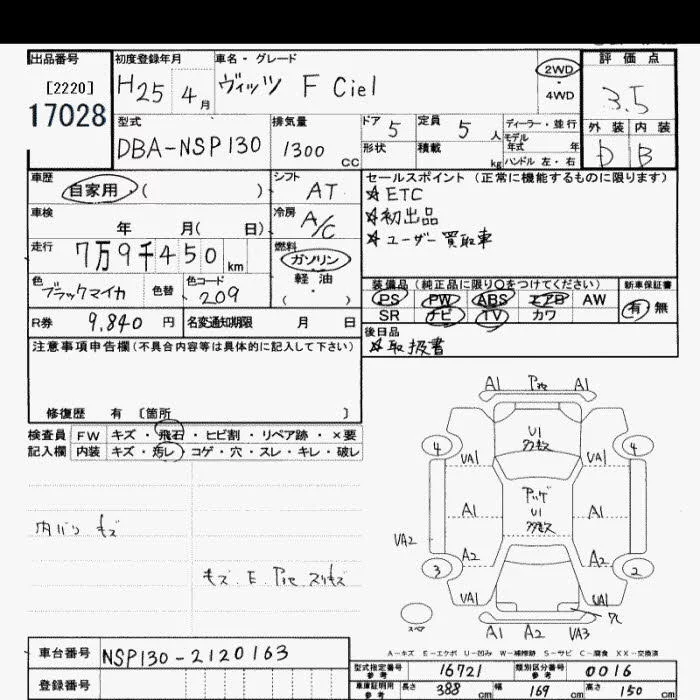 出品番号 初度登録年月 車名・グレード 評価点
[2220] H25 4月 ヴィッツ F Ciel 2WD ・ 4WD 3.5
17028
型式 排気量 ドア 5 定員 5 人 ディーラー・並行 外装 内装
DBA-NSP130 1300 cc 形状 積載 kg モデル年式 年 D B
ハンドル 左・右
車歴 シフト セールスポイント (正常に機能するものに限ります)
自家用 ( ) AT ☆ETC
車検 冷房 ☆初出品
年 月( 日) A/C ☆ユーザー買取車
走行 燃料
7万9千450 km ガソリン
色 色替 色コード 軽油
ブラックマイカ 209 ( ・ )
装備品 (純正品に限り○をつけてください) 新車保証書
PS PW ABS エアB AW 有 無
SR ナビ TV カワ
R券 9,840 円 名変通知期限 月 日
後日品
☆取扱書
注意事項申告欄(不具合内容等は具体的に記入して下さい)
修復歴 有 〔箇所 〕
検査員 FW キズ・飛石・ヒビ割・リペア跡・×要
記入欄 内装 キズ・汚レ・コゲ・穴・スレ・キレ・破レ
内バリ キズ
A1 A1
U1
4 4
UA1 UA1
U1
A1 A1
UA2
A2 A2
3 2
UA1 UA1
スペア A1 A2 UA3
A-キズ E-エクボ U-凹み W-補修跡 S-サビ C-腐食 XX-交換済
車台番号 NSP130-2120163
登録番号
型式指定番号 参考 16721 類別区分番号 参考 0016
車庫証明用 参考 長さ 388 cm 幅 169 cm 高さ 150 cm